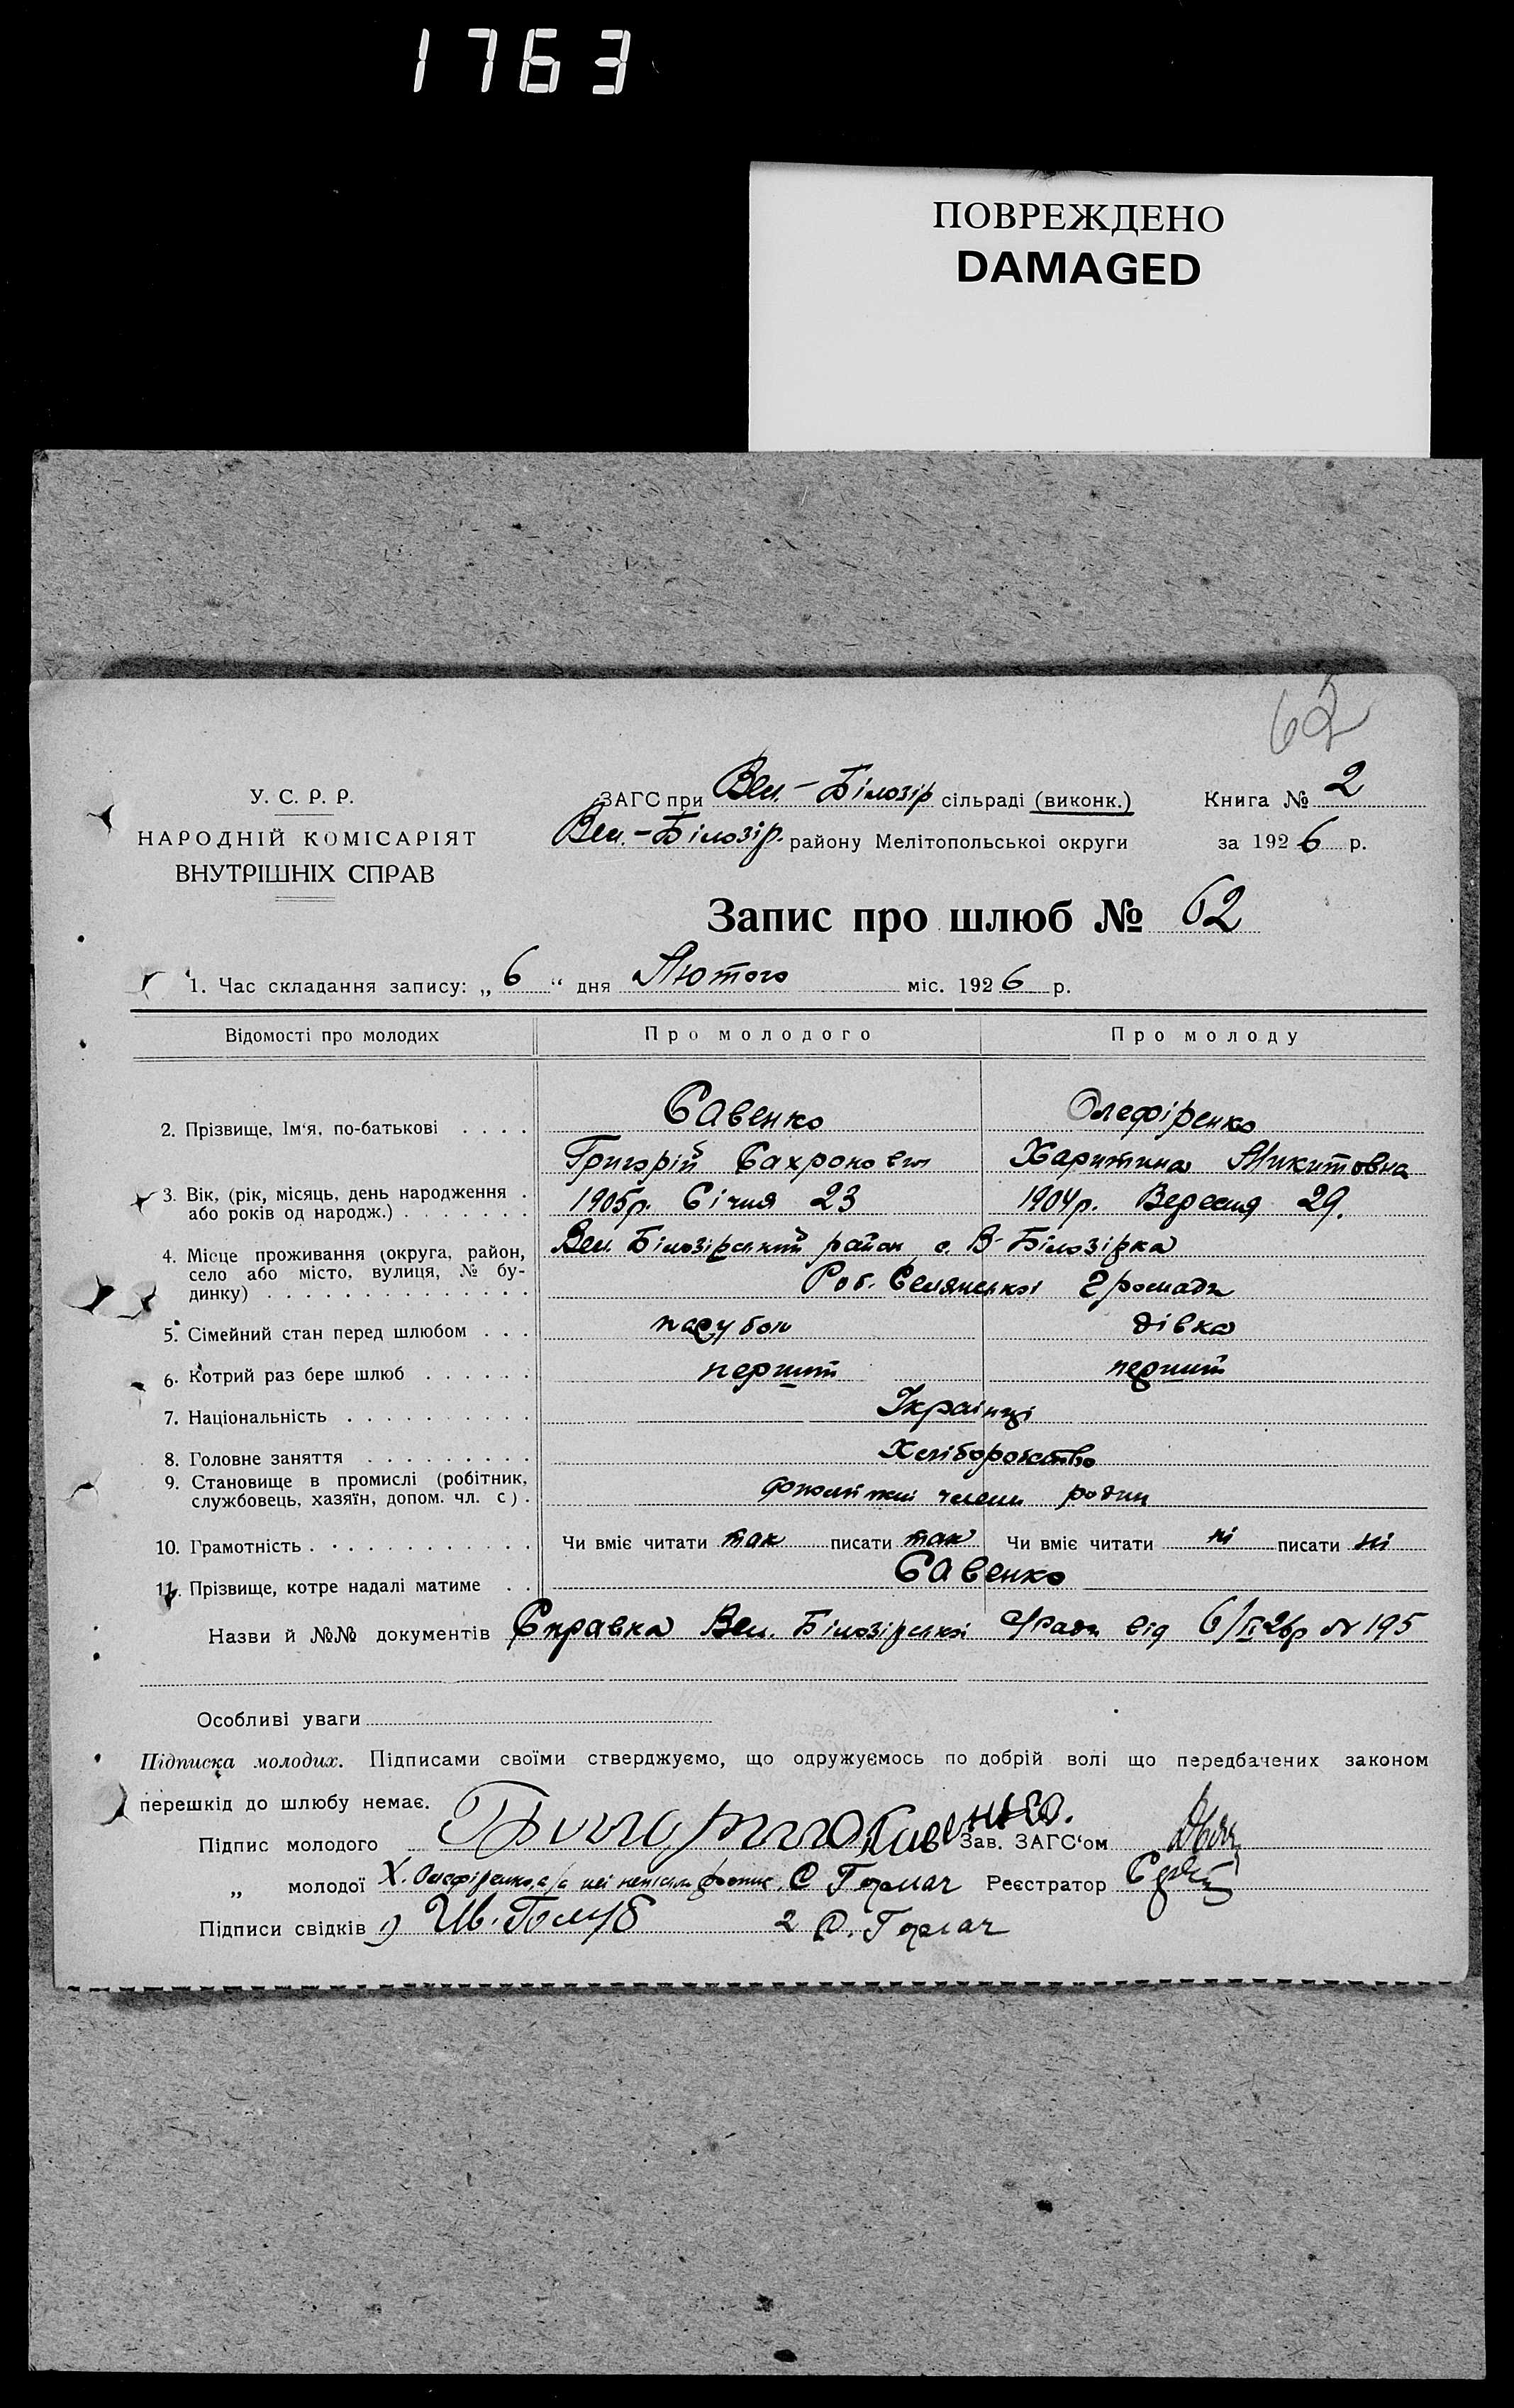 1763
ПОВРЕЖДЕНО
DAMAGED
62
У. С. Р. Р.
НАРОДНІЙ КОМІСАРІЯТ
ВНУТРІШНІХ СПРАВ
ЗАГС при Вел.-Білозір сільраді (виконк.)
Вел.-Білозір. району Мелітопольської округи
Книга № 2
за 1926 р.
Запис про шлюб № 62
1. Час складання запису: „6“ дня Лютого міс. 1926 р.
Відомості про молодих Про молодого Про молоду
2. Прізвище, Ім'я, по-батькові . . . . Савенко Олефіренко
Григорій Харитина Микитовна
3. Вік, (рік, місяць, день народження . 1905р. Січня 23 1904р. Вересня 29.
або років од народж.) . . . . . . .
4. Місце проживання (округа, район, Вел. Білозірський район с. В-Білозірка
село або місто, вулиця, № бу-
динку) . . . . . . . . . . . . . . Роб. Селянської Громади
5. Сімейний стан перед шлюбом . . . парубок дівка
6. Котрий раз бере шлюб . . . . . . перший перший
7. Національність . . . . . . . . . . Українці
8. Головне заняття . . . . . . . . . Хліборобство
9. Становище в промислі (робітник,
службовець, хазяїн, допом. чл. с) . члени родин
10. Грамотність . . . . . . . . . . . . Чи вміє читати так писати так Чи вміє читати ні писати ні
11. Прізвище, котре надалі матиме . . Савенко
Назви й №№ документів Справка Вел. Білозірської С/Ради від 6/II 26р № 195
Особливі уваги
Підписка молодих. Підписами своїми стверджуємо, що одружуємось по добрій волі що передбачених законом
перешкід до шлюбу немає.
Підпис молодого Зав. ЗАГС'ом
„ молодої Х. Олефіренко, а/с Реєстратор
Підписи свідків 1) Ив. Голуб 2